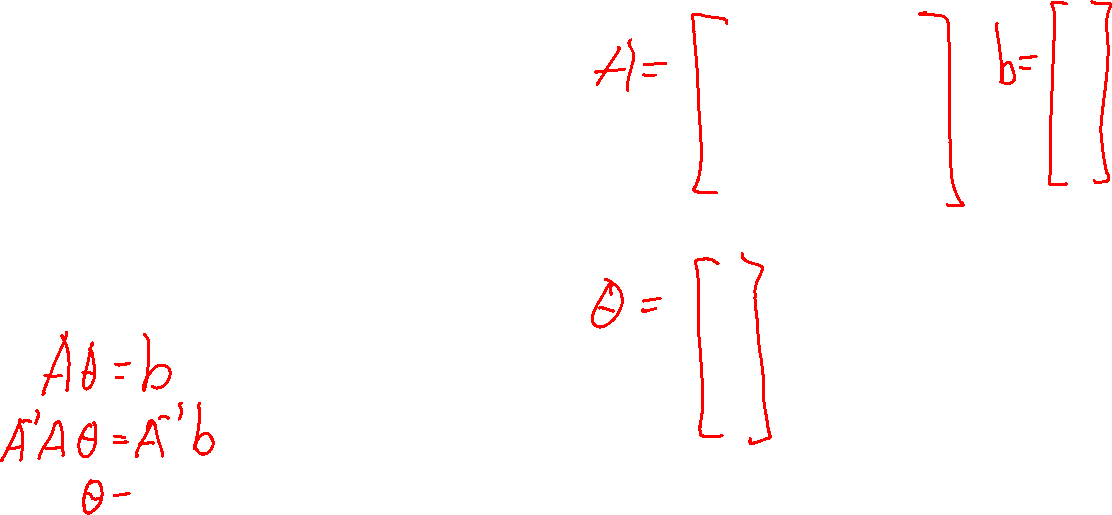 A = [ ] b = [ ]
θ = [ ]
Aθ = b
A⁻¹Aθ = A⁻¹b
θ =